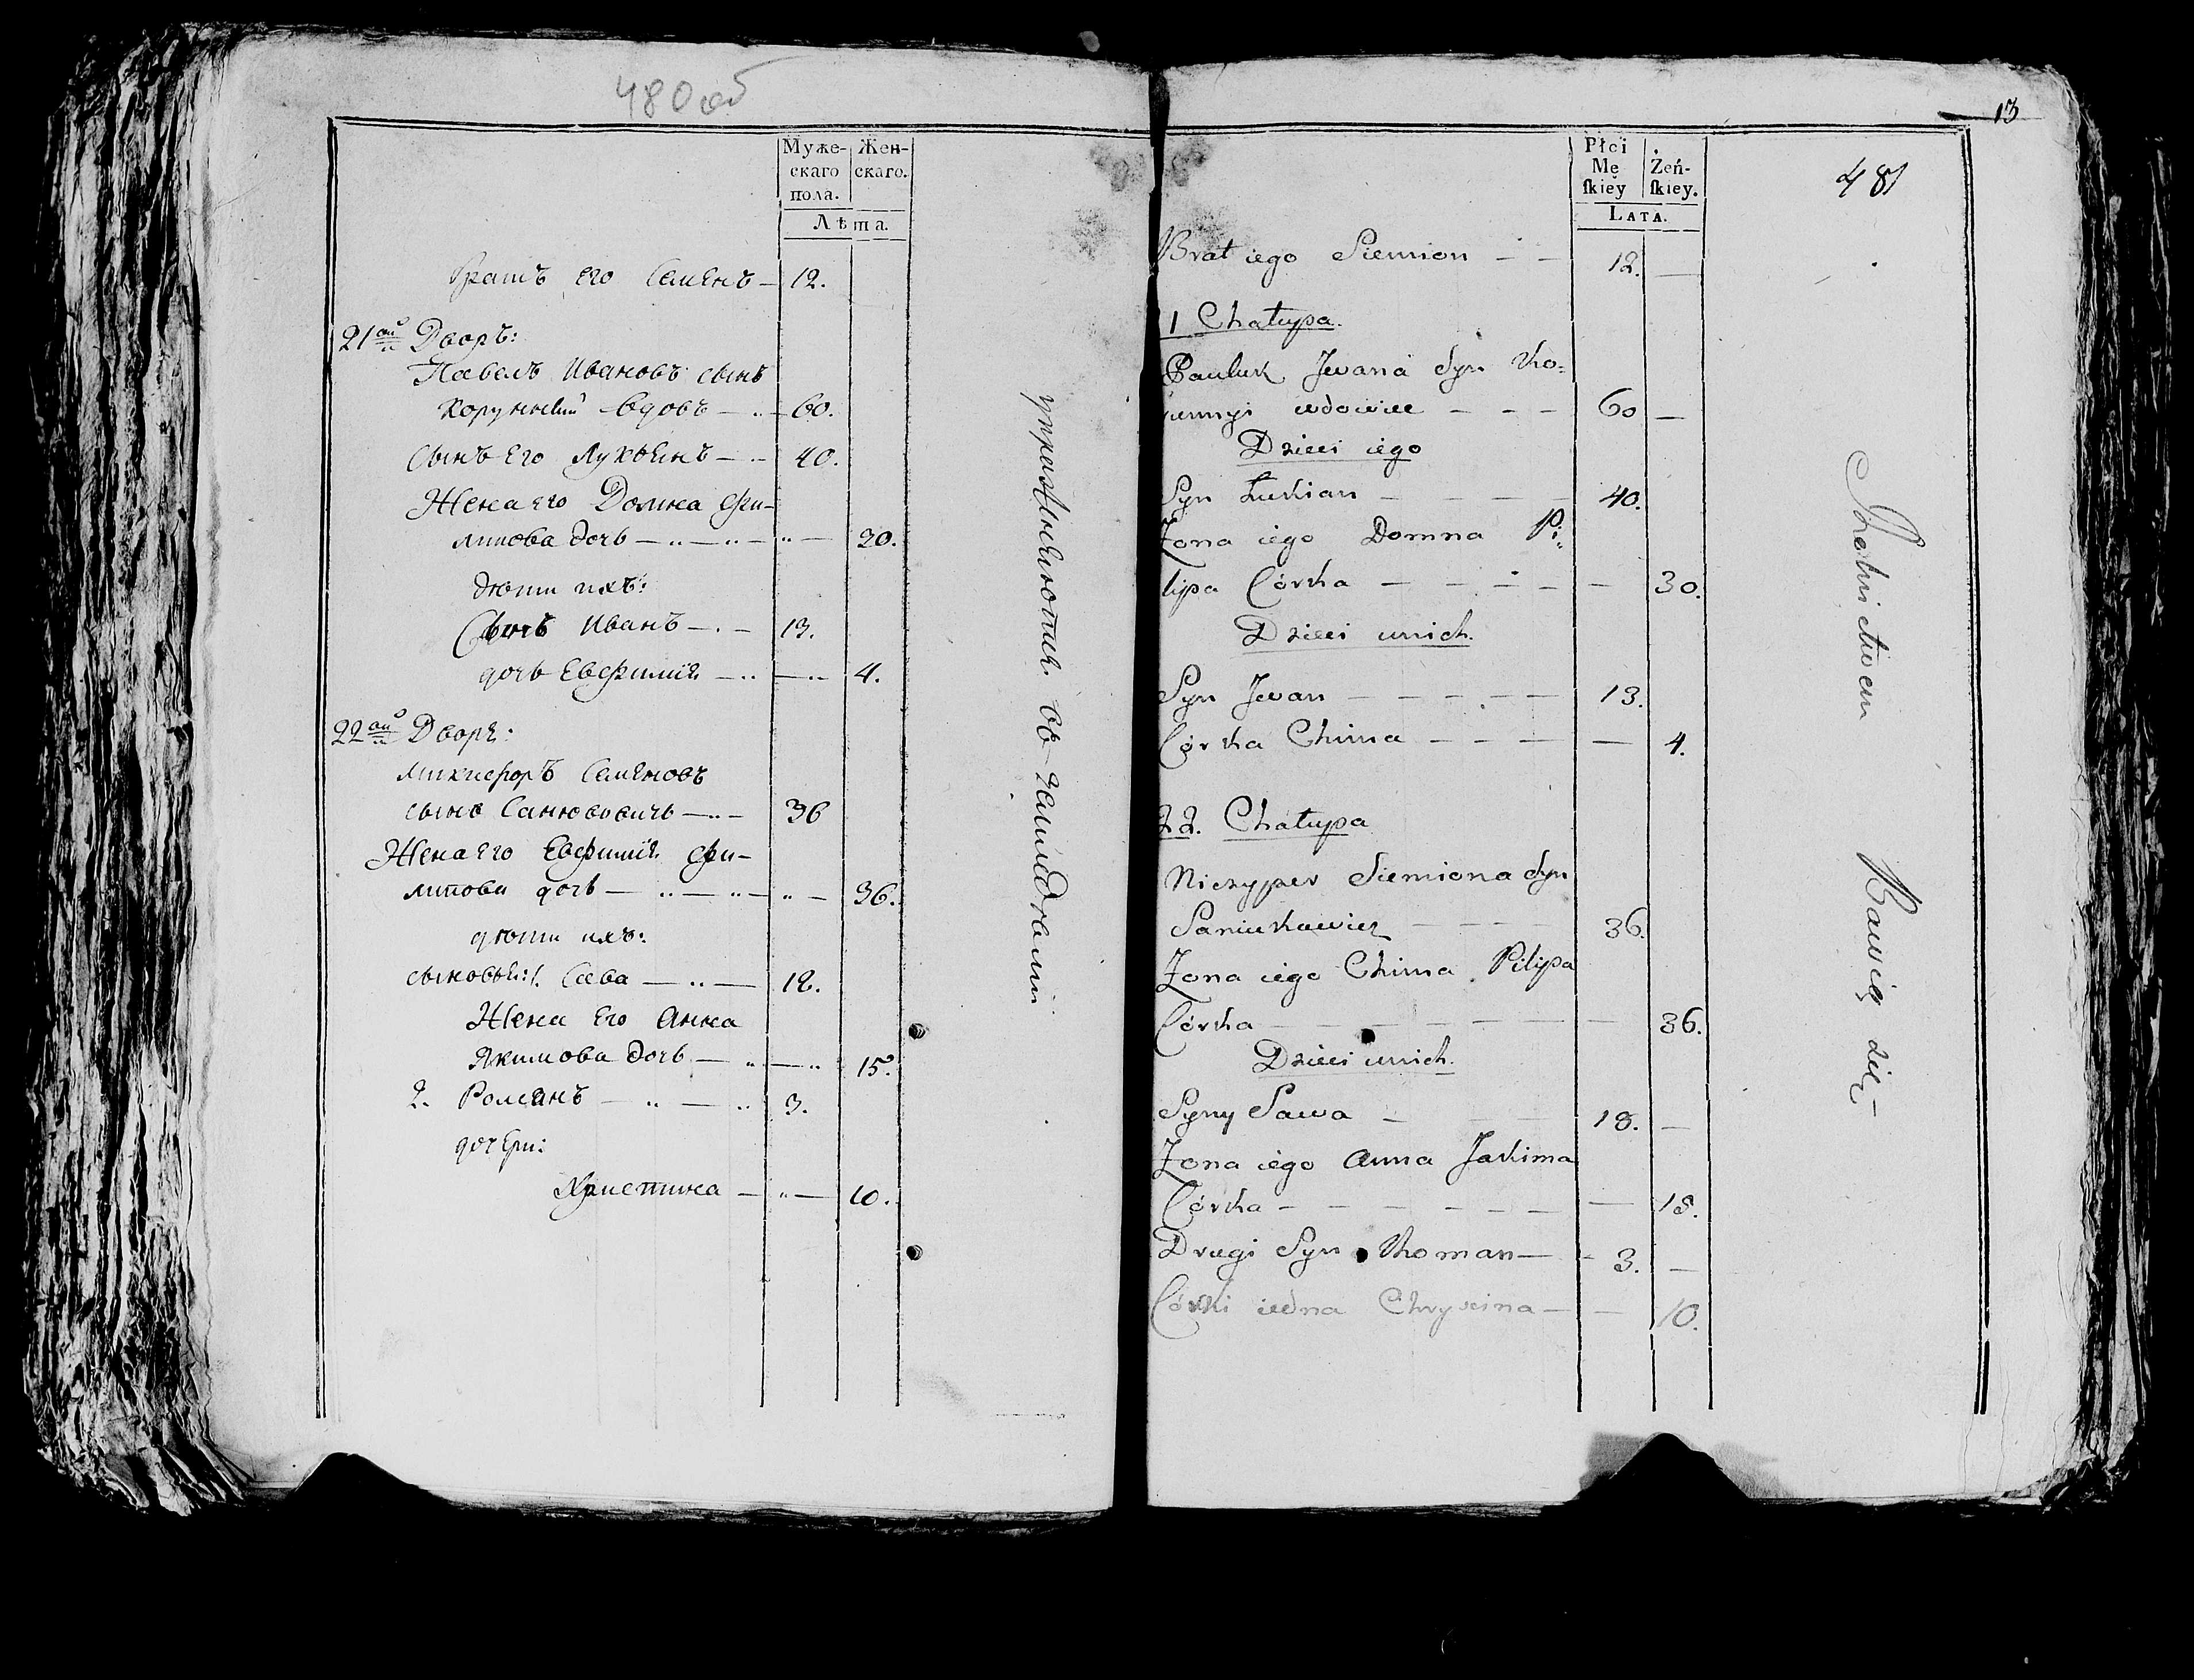 480 об
Муже-
скаго
пола.
Жен-
скаго.
Лѣта.
Братъ его Семенъ — 12.
21й Дворъ:
Павелъ Ивановъ сынъ
Коружный вдовъ — 60.
Сынъ его Лукьянъ — 40.
Жена его Домна Фи-
липова дочь — 30.
дѣти ихъ:
Сынъ Иванъ — 13.
дочь Евфимия — 4.
22й Дворъ:
Никифоръ Семеновъ
сынъ Санюковичъ — 36
Жена его Евфимия Фи-
липова дочь — 36.
дѣти ихъ:
сыновья: 1. Сава — 18.
Жена его Анна
Якимова дочь — 15.
2. Романъ — 3.
дочери:
Христина — 10.
упражняются въ земледѣлии
13
481
Płci
Mę
skiey
Żeń-
skiey.
LATA.
Brat iego Siemion — 12. —
1 Chałupa.
Pauluk Jwana Syn Ko=
wdowiec — 60 —
Dzieci iego
Syn Łukian — 40.
Żona iego Domna Pi=
lipa Córka — 30.
Dzieci unich.
Syn Jwan — 13.
Córka Chima — 4.
22. Chałupa
Niczyper Siemiona Syn
Saniukawicz — 36.
Żona iego Chima Pilipa
Córka — 36.
Dzieci unich.
Syny Sawa — 18. —
Żona iego Anna Jakima
Córka — 18.
Drugi Syn Roman — 3. —
Córki iedna Chryscina — 10.
Rolnictwem Bawią się —